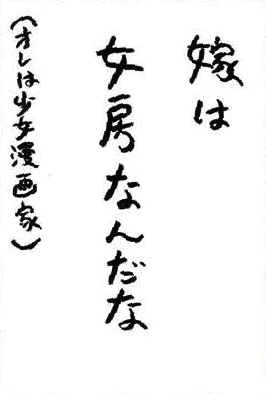 嫁は
女房なんだな
(オレは少女漫画家)